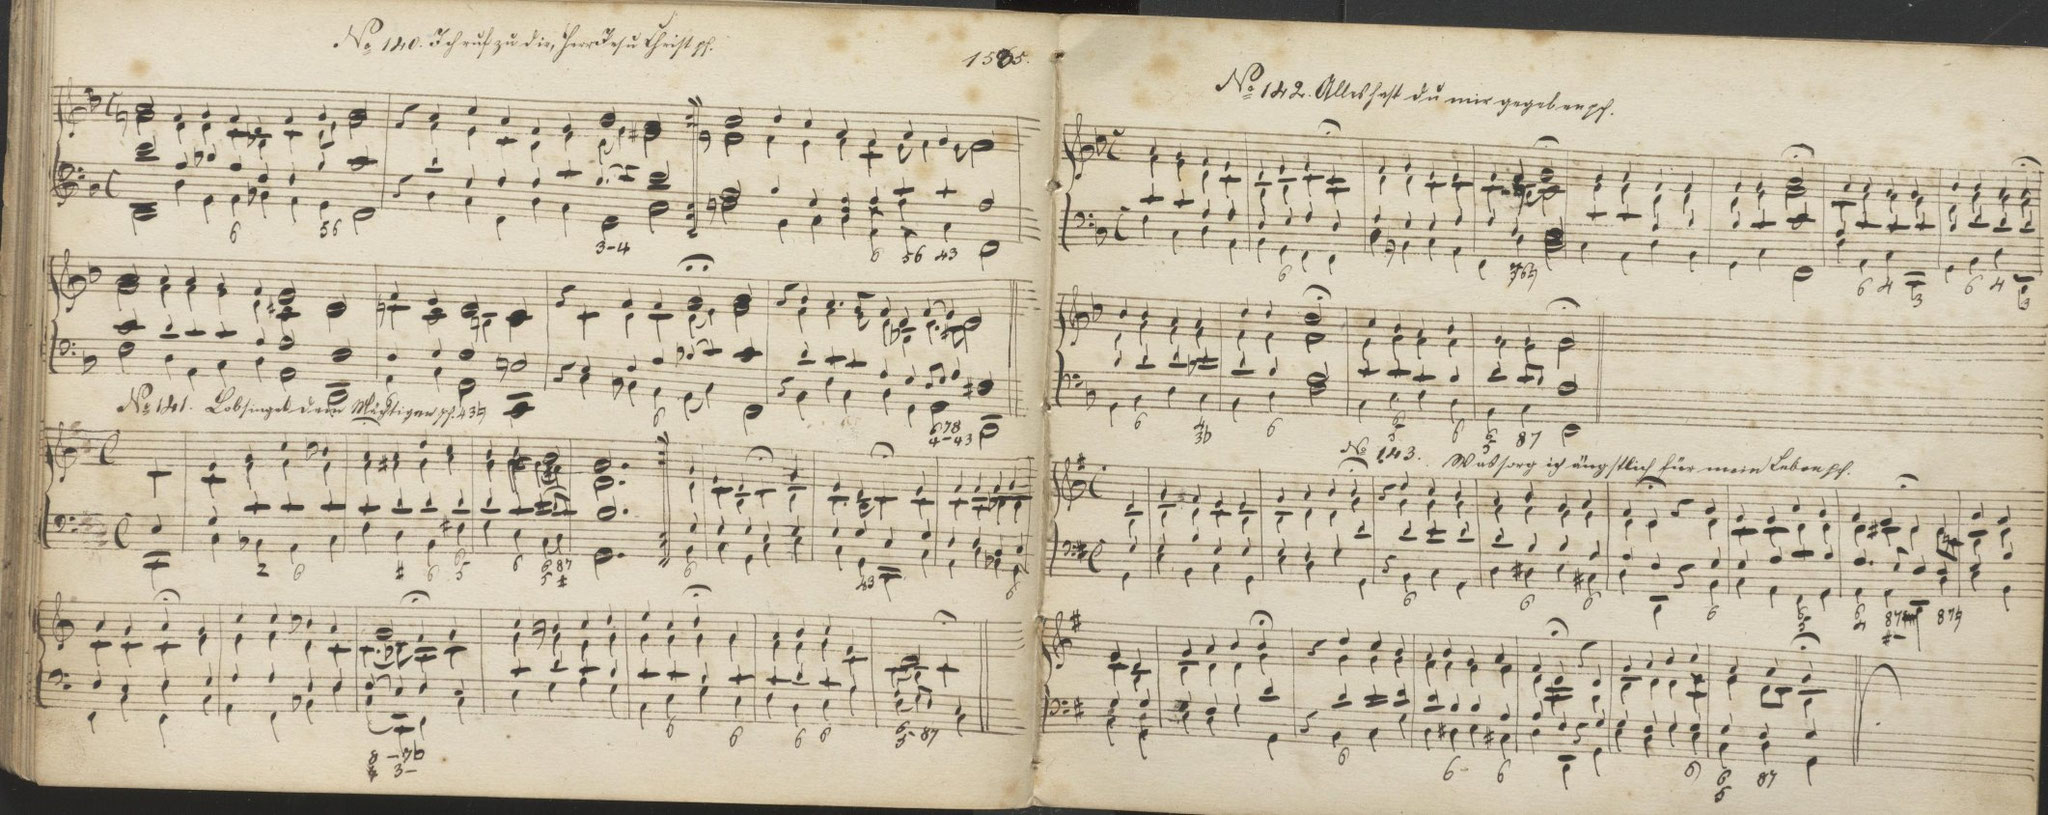 No 140. Ich ruf zu dir, Herr Jesu Christ pp.
1565.
6 56 3-4 6 56 43
6 678
4-43
No 141. Lobsinget dem Mächtigen pp.
2 6 # 6 6
5 6 6 87
5 # 6 43 6
8 -7b
3- 6 6 6 6 6- 87
5
No 142. Alles hast du mir gegeben pp.
6 6 4 3 6 4 3
6 4
3b 6 6 87
No 143. Was sorg ich ängstlich für mein Leben pp.
6 6 6 6 87
6 6- 6 6 6
5 87